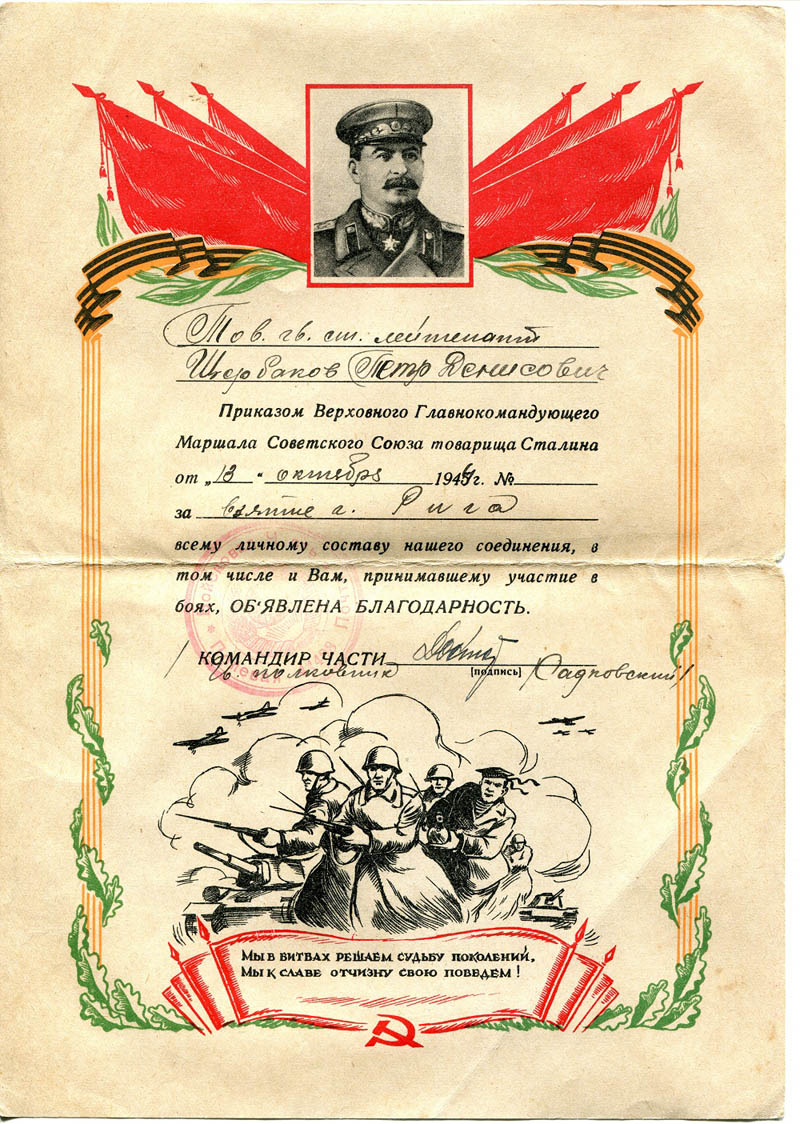 Тов. гв. ст. лейтенант
Щербаков Петр Денисович
Приказом Верховного Главнокомандующего
Маршала Советского Союза товарища Сталина
от „13" октября 1944г. №
за взятие г. Рига
всему личному составу нашего соединения, в
том числе и Вам, принимавшему участие в
боях, ОБ'ЯВЛЕНА БЛАГОДАРНОСТЬ.
КОМАНДИР ЧАСТИ
[подпись]
/ гв. полковник Садковский /
МЫ В БИТВАХ РЕШАЕМ СУДЬБУ ПОКОЛЕНИЙ,
МЫ К СЛАВЕ ОТЧИЗНУ СВОЮ ПОВЕДЕМ!